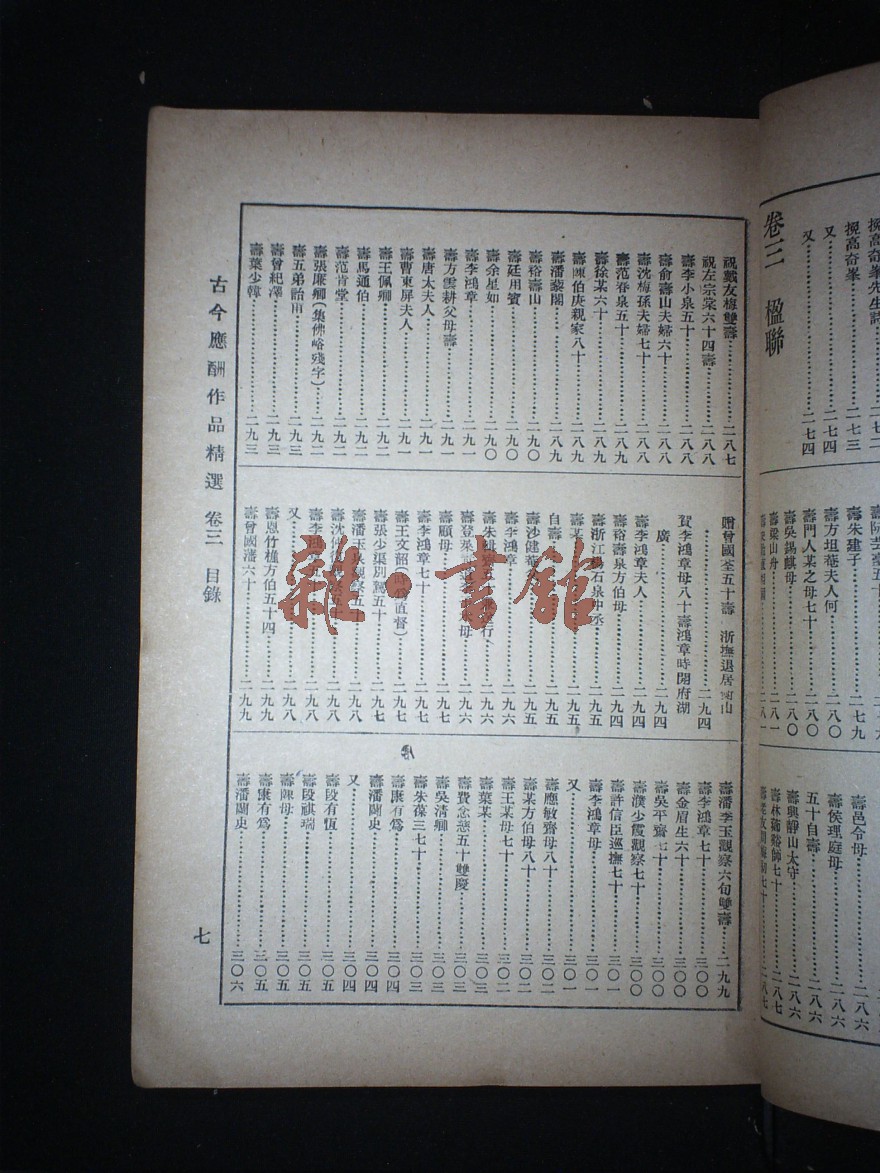 卷三 楹聯
挽高奇峯先生詩
挽高奇峯……二七三
又……二七四
又……二七四
壽朱建子……二七九
壽方坦菴夫人何……二八〇
壽門人某之母七十……二八〇
壽吳錫麒母……二八〇
壽梁山舟……二八一
壽邑令母……二八六
壽侯理庭母……二八六
五十自壽……二八六
壽興靜山太守……二八六
祝戴友梅雙壽……二八七
祝左宗棠六十四壽……二八八
壽李小泉五十……二八八
壽俞壽山夫婦六十……二八八
壽沈梅孫夫婦七十……二八八
壽范春泉五十……二八九
壽徐某六十……二八九
壽陳伯庚親家八十……二八九
壽潘藜閣……二八九
壽裕壽山……二九〇
壽廷用賓……二九〇
壽余星如……二九〇
壽李鴻章……二九一
壽方雲耕父母壽……二九一
壽唐太夫人……二九一
壽曹東屏夫人……二九一
壽王佩卿……二九二
壽馬通伯……二九二
壽范肯堂……二九二
壽張廉卿(集佛峪殘字)……二九二
壽五弟詒甫……二九三
壽曾紀澤……二九三
壽葉少韓……二九三
贈曾國荃五十壽 浙撫退居衡山……二九四
賀李鴻章母八十壽鴻章時開府湖
廣……二九四
壽李鴻章夫人……二九四
壽裕壽泉方伯母……二九四
壽浙江楊石泉中丞……二九五
壽某……二九五
自壽……二九五
壽沙健菴……二九五
壽李鴻章……二九五
壽朱……行……二九六
登萊……母……二九六
壽顧母……二九七
壽李鴻章七十……二九七
壽王文韶(時爲直督)……二九七
壽張少渠別駕五十……二九七
壽潘玉泉觀察五十……二九八
壽沈仲復……五十……二九八
壽李鴻章……二九八
又……二九八
壽恩竹樵方伯五十四……二九九
壽曾國藩六十……二九九
壽潘季玉觀察六旬雙壽……二九九
壽李鴻章七十……三〇〇
壽金眉生六十……三〇〇
壽吳平齋七十……三〇〇
壽濮少霞觀察七十……三〇〇
壽許信臣巡撫七十……三〇一
壽李鴻章母……三〇一
又……三〇一
壽應敏齋母八十……三〇二
壽某方伯母八十……三〇二
壽王某母七十……三〇二
壽葉某……三〇三
壽費念慈五十雙慶……三〇三
壽吳清卿……三〇三
壽朱葆三七十……三〇三
壽康有爲……三〇四
壽潘蘭史……三〇四
又……三〇四
壽段有恆……三〇五
壽段祺瑞……三〇五
壽陳母……三〇五
壽康有爲……三〇五
壽潘蘭史……三〇六
古今應酬作品精選 卷三 目錄
七
雜·書館